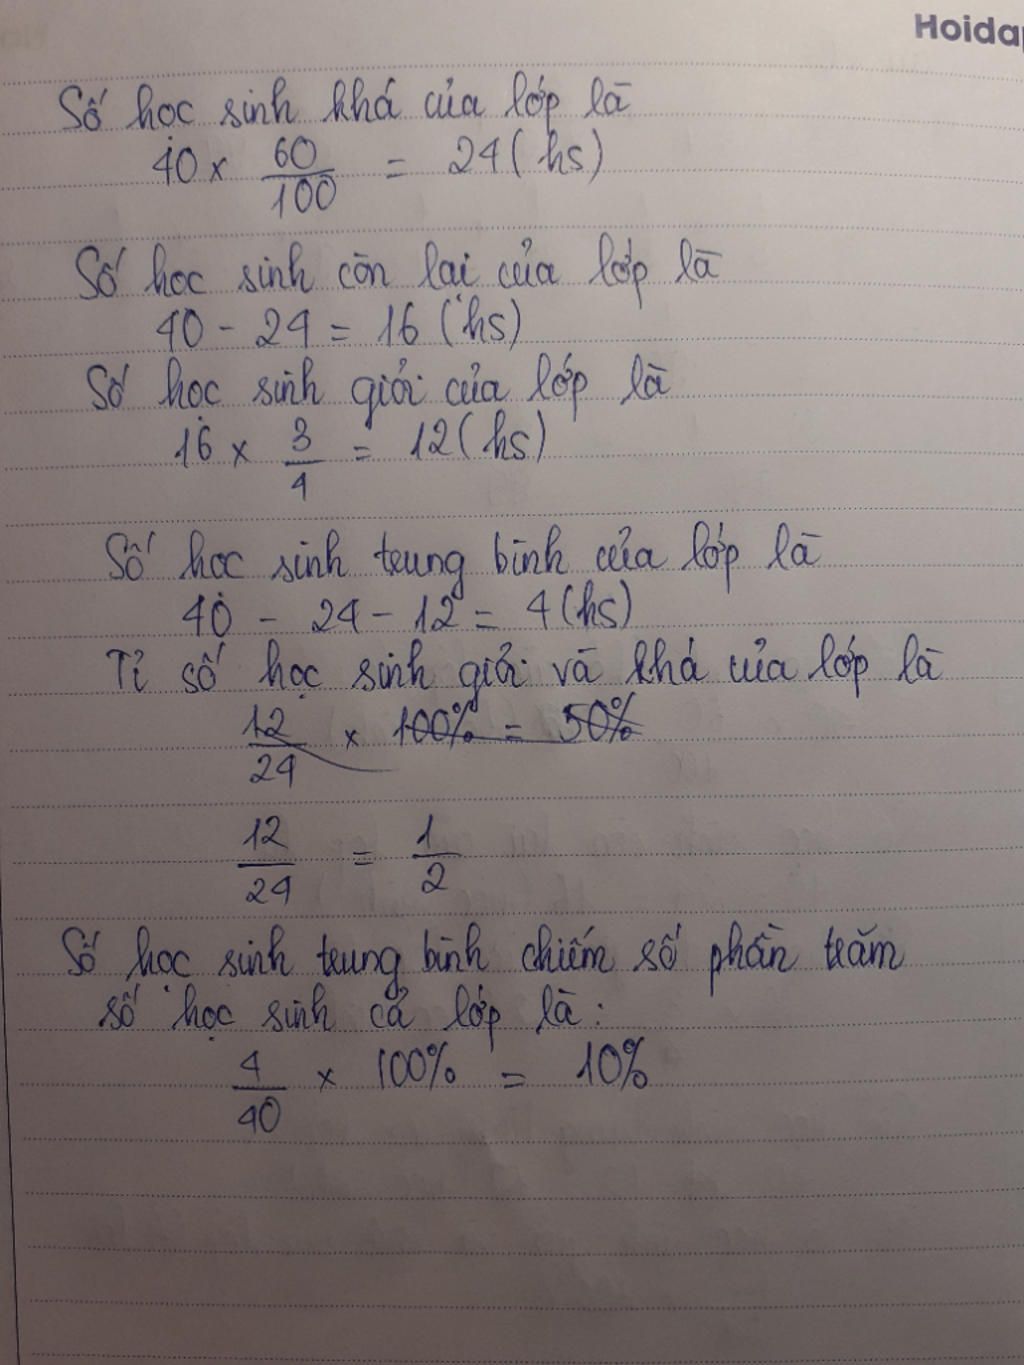 Hoidap
Số học sinh khá của lớp là
40 x 60/100 = 24 (hs)
Số học sinh còn lại của lớp là
40 - 24 = 16 (hs)
Số học sinh giỏi của lớp là
16 x 3/4 = 12 (hs)
Số học sinh trung bình của lớp là
40 - 24 - 12 = 4 (hs)
Tỉ số học sinh giỏi và khá của lớp là
12/24 x 100% = 50%
12/24 = 1/2
Số học sinh trung bình chiếm số phần trăm
số học sinh cả lớp là:
4/40 x 100% = 10%